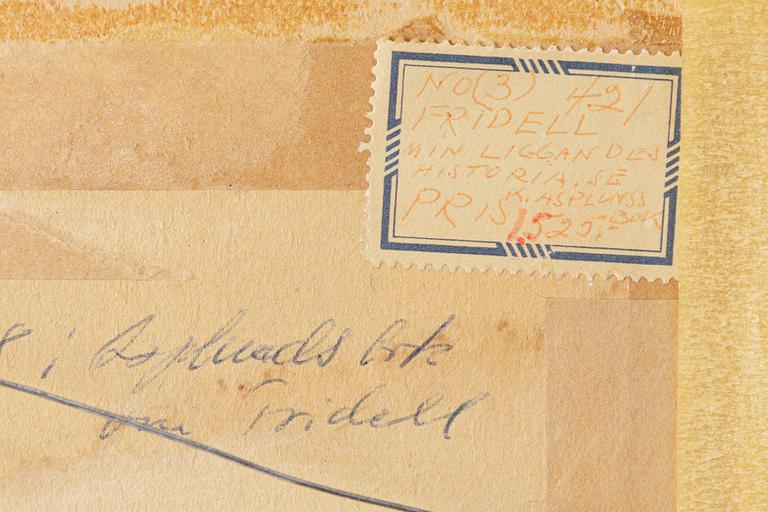 NO(3) 421
FRIDELL
MIN LIGGANDES
HISTORIA. SE
K. ASPLUNSS
PRIS 1525:- BOK
i Asplunds bok
om Fridell